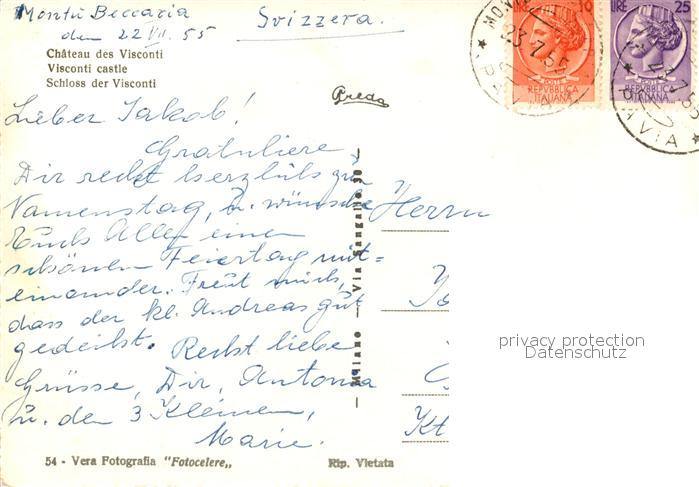 Montù Beccaria
den 22 VII. 55
Svizzera.
Château des Visconti
Visconti castle
Schloss der Visconti
Preda
Lieber Jakob!
Gratuliere
Dir recht herzlich zum
Namenstag, u. wünsche
Euch Allen einen
schönen Feiertag mit=
einander. Freut mich,
dass der kl. Andreas gut
gedeiht. Recht liebe
Grüsse, Dir, Antonia
u. den 3 Kleinen,
Marie.
Herrn
Kt
— Milano — Via Sangallo 30 —
54 - Vera Fotografia "Fotocelere„
Rip. Vietata
LIRE 10
REPVBBLICA
ITALIANA
LIRE 25
REPVBBLICA
ITALIANA
23.7.55
PAVIA
privacy protection
Datenschutz